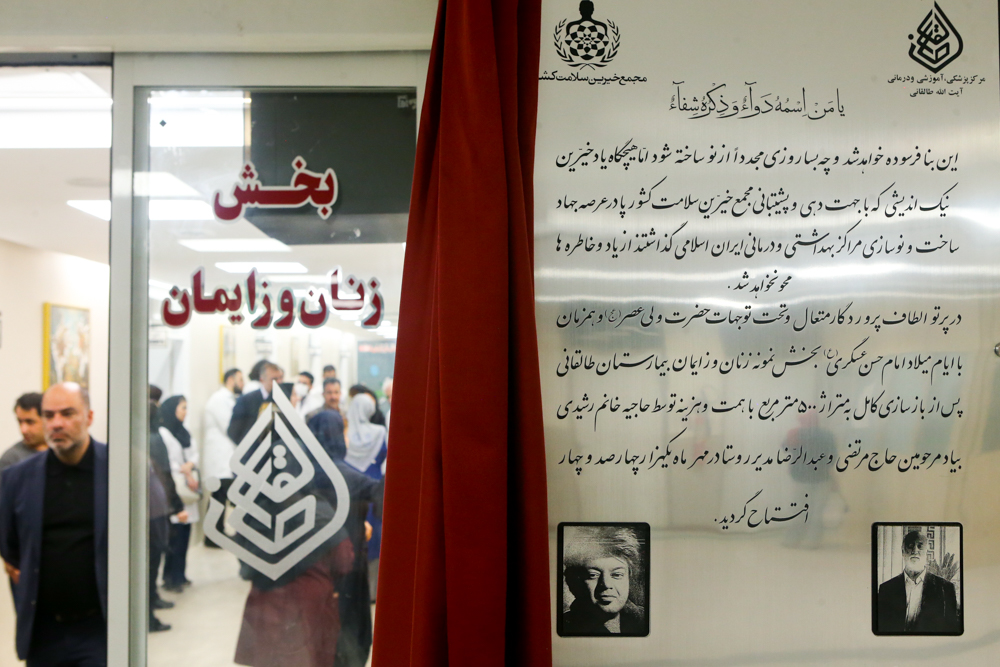 مجمع خیرین سلامت کشور
مرکز پزشکی، آموزشی و درمانی
آیت الله طالقانی
یا مَن اِسمُهُ دَوآءٌ وَ ذِکرُهُ شِفآءٌ
این بنا فرسوده خواهد شد و چه بسا روزی مجدداً از نو ساخته شود اما هیچگاه یاد خیرین
نیک اندیشی که با جهت دهی و پشتیبانی مجمع خیرین سلامت کشور پا در عرصه جهاد
ساخت و نوسازی مراکز بهداشتی و درمانی ایران اسلامی گذاشتند از یاد و خاطره ها
محو نخواهد شد.
در پرتو الطاف پروردگار متعال و تحت توجهات حضرت ولی عصر (عج) و همزمان
با ایام میلاد امام حسن عسگری (ع) بخش نمونه زنان و زایمان بیمارستان طالقانی
پس از بازسازی کامل به متراژ ۵۰۰ متر مربع با همت و هزینه توسط حاجیه خانم رشیدی
بیاد مرحومین حاج مرتضی و عبدالرضا مدیر روستا در مهر ماه یکهزار چهارصد و چهار
افتتاح گردید.
بخش
زنان و زایمان
طالقانی